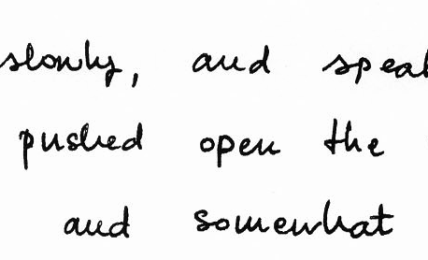 slowly, and speak
pushed open the
and somewhat